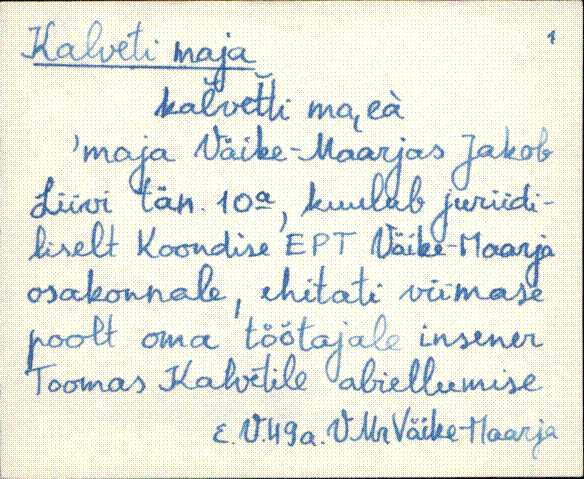 1
Kalveti maja
kalvetti ma, eà
'maja Väike-Maarjas Jakob
Liivi tän. 10a, kuulub juriidi-
liselt Koondise EPT Väike-Maarja
osakonnale, ehitati viimase
poolt oma töötajale insener
Toomas Kalvetile abiellumise
E. V. 49 a. V.Mr Väike-Maarja